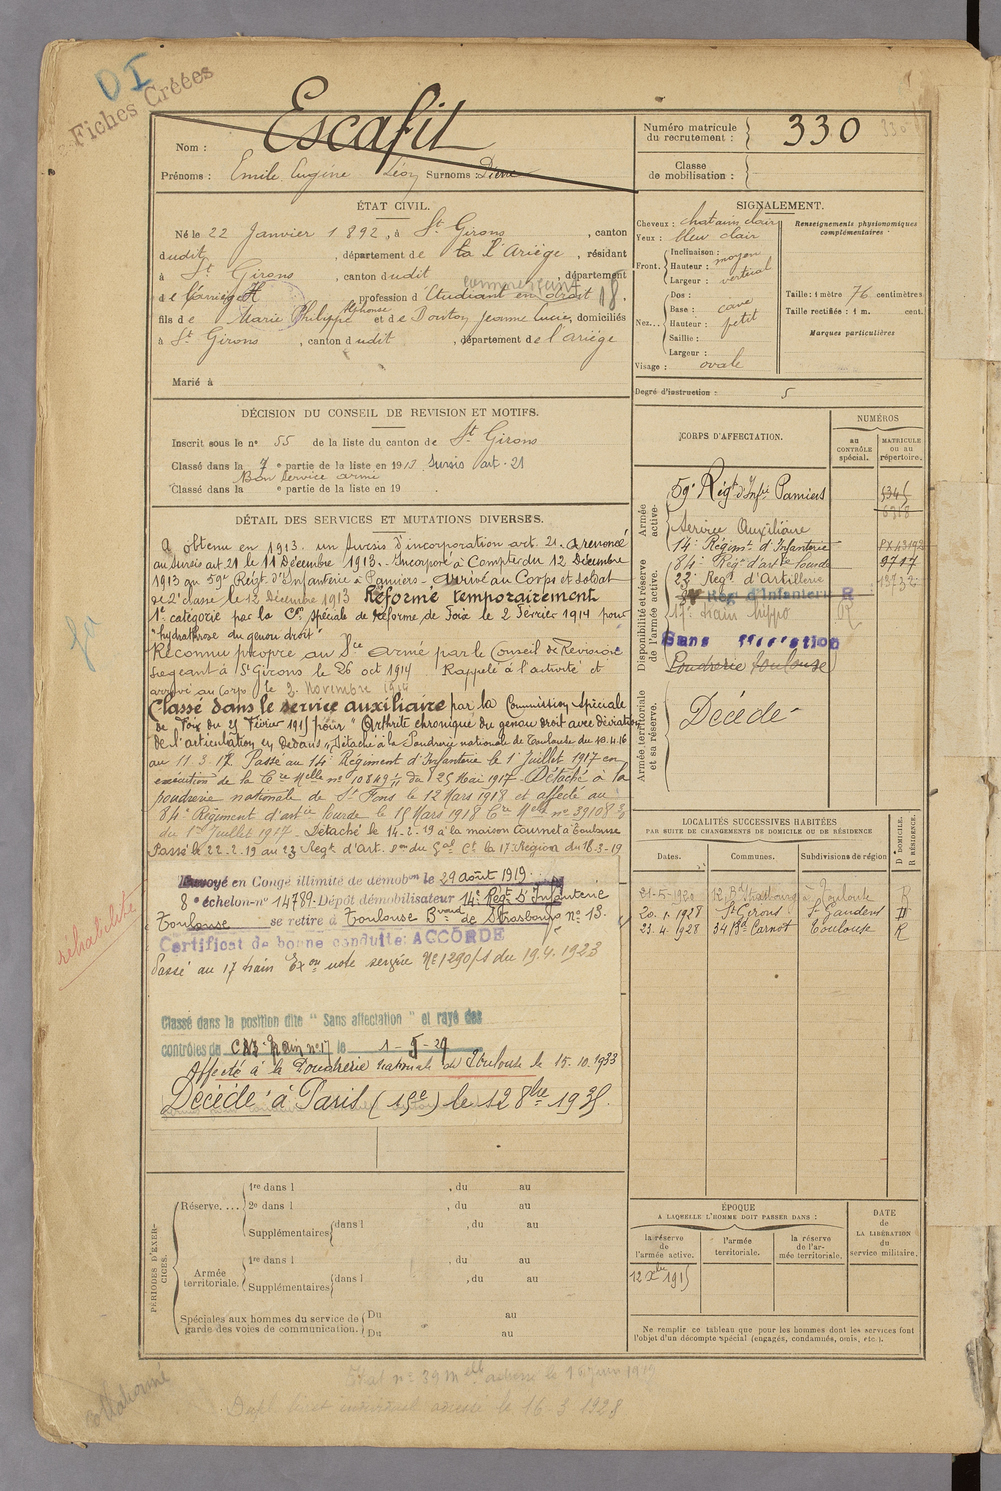 DI
Fiches Créées
Escafit
Nom :
Prénoms : Emile Eugène Léon Surnoms : Pierre
Numéro matricule du recrutement : 330
Classe de mobilisation :
ÉTAT CIVIL.
Né le 22 Janvier 1892, à St Girons, canton
dudit, département de l'Ariège, résidant
à St Girons, canton dudit, département
de l'Ariège, profession d'Etudiant en droit
commerçant 18.
fils de Marie Philippe Alphonse et de Doutoy Jeanne Lucie, domiciliés
à St Girons, canton dudit, département de l'Ariège
Marié à
SIGNALEMENT.
Cheveux : chatain clair
Yeux : bleu clair
Front. Inclinaison :
Hauteur : moyen
Largeur : vertical
Nez... Dos :
Base : cave
Hauteur : petit
Saillie :
Largeur :
Visage : ovale
Renseignements physionomiques complémentaires :
Taille : 1 mètre 76 centimètres
Taille rectifiée : 1 m. cent.
Marques particulières
Degré d'instruction : 5
DÉCISION DU CONSEIL DE REVISION ET MOTIFS.
Inscrit sous le no 55 de la liste du canton de St Girons
Classé dans la 7e partie de la liste en 1913 Sursis art. 21
Bon service armé
Classé dans la e partie de la liste en 19 .
DÉTAIL DES SERVICES ET MUTATIONS DIVERSES.
A obtenu en 1913 un Sursis d'incorporation art. 21. A renoncé
au Sursis art 21 le 11 Décembre 1913. - Incorporé à Compter du 12 Décembre
1913 au 59e Régt d'Infanterie à Pamiers - Arrivé au Corps et soldat
de 2e classe le 12 Décembre 1913 Réformé temporairement
1e catégorie par la Con spéciale de Réforme de Foix le 2 Février 1914 pour
"hydrathrose du genou droit"
Reconnu propre au Sce armé par le Conseil de Revision
siégeant à St Girons le 26 oct 1914 Rappelé à l'activité et
arrivé au Corps le 3 Novembre 1914
Classé dans le service auxiliaire par la Commission Spéciale
de Foix du 25 Février 1915 pour "Arthrite chronique du genou droit avec déviation
de l'articulation en Dedans". Détaché à la Poudrerie nationale de Toulouse du 10.4.16
au 11.3.17. Passé au 14e Régiment d'Infanterie le 1er Juillet 1917 en
exécution de la Cre Melle no 10849 1/11 du 25 Mai 1917 - Détaché à la
poudrerie nationale de St Fons le 12 Mars 1918 et affecté au
84e Régiment d'artie lourde le 15 Mars 1918 Cre Melle no 39108 2/3
du 1er Juillet 1917 - Détaché le 14-2-19 à la maison Cournet à Toulouse
Passé le 22-2-19 au 23 Régt d'Art. on du Gal Ct la 17e Région du 18-3-19
Envoyé en Congé illimité de démobon le 29 août 1919.
8e échelon-no 14789-Dépôt démobilisateur 14e Régt D'Infanterie
Toulouse se retire à Toulouse Bvard de Strasbourg no 13.
Certificat de bonne conduite: ACCORDÉ
Passé au 17 train Exon note service No 1290/1 du 19.4.1923
Classé dans la position dite "Sans affectation" et rayé des
contrôles de train no 17 le 1-5-29
Affecté à la Poudrerie Nationale de Toulouse le 15.10.1933
Décédé à Paris (15e) le 12 8bre 1935.
réhabilité
CORPS D'AFFECTATION.
NUMÉROS
au CONTRÔLE spécial.
MATRICULE OU AU répertoire.
Armée active.
59e Régt d'Infie Pamiers 5345
Service Auxiliaire
14e Régimt d'Infanterie
Disponibilité et réserve de l'armée active.
84e Régt d'artie lourde 9717
23e Regt d'Artillerie
Rég d'Infanterie R
17e train hippo R
Sans affectation
Poudrerie Toulouse
Armée territoriale et sa réserve.
Décédé
LOCALITÉS SUCCESSIVES HABITÉES
PAR SUITE DE CHANGEMENTS DE DOMICILE OU DE RÉSIDENCE
Dates. Communes. Subdivisions de région
D DOMICILE. R RÉSIDENCE.
21-5-1920 12, Bd Strasbourg à Toulouse R
20.1.1928 St Girons St Gaudens D
23.4.1928 34 Bd Carnot Toulouse R
PÉRIODES D'EXERCICES.
Réserve....
1re dans l , du au
2e dans l , du au
Supplémentaires dans l , du au
Armée territoriale.
1re dans l , du au
Supplémentaires dans l , du au
Spéciales aux hommes du service de garde des voies de communication.
Du au
Du au
ÉPOQUE
A LAQUELLE L'HOMME DOIT PASSER DANS :
la réserve de l'armée active.
l'armée territoriale.
la réserve de l'armée territoriale.
DATE DE LA LIBÉRATION du service militaire.
12 Xbre 1915
Ne remplir ce tableau que pour les hommes dont les services font
l'objet d'un décompte spécial (engagés, condamnés, omis, etc.).
Etat no 39 Melle adressé le 16 juin 1919
individuel adressé le 16-3-1928